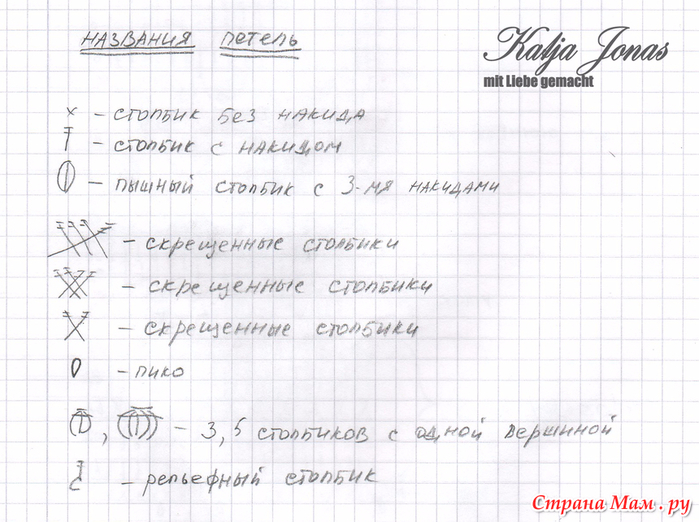 НАЗВАНИЯ ПЕТЕЛЬ
Katja Jonas
mit Liebe gemacht
× – СТОЛБИК БЕЗ НАКИДА
– СТОЛБИК С НАКИДОМ
– ПЫШНЫЙ СТОЛБИК С 3-МЯ НАКИДАМИ
– СКРЕЩЕННЫЕ СТОЛБИКИ
– СКРЕЩЕННЫЕ СТОЛБИКИ
– СКРЕЩЕННЫЕ СТОЛБИКИ
– ПИКО
, – 3, 5 СТОЛБИКОВ С ОДНОЙ ВЕРШИНОЙ
– РЕЛЬЕФНЫЙ СТОЛБИК
Страна Мам . ру